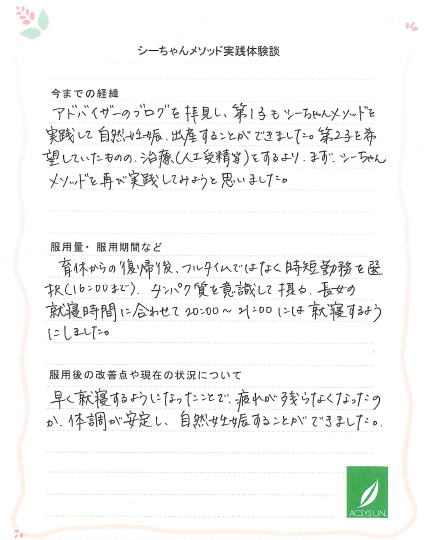 シーちゃんメソッド実践体験談
今までの経緯
アドバイザーのブログを拝見し、第1子もシーちゃんメソッドを
実践して自然妊娠、出産することができました。第2子を希
望していたものの、治療(人工受精等)をするより、まず、シーちゃん
メソッドを再び実践してみようと思いました。
服用量・服用期間など
育休からの復帰後、フルタイムではなく時短勤務を選
択(16:00まで)、タンパク質を意識して摂る、長女の
就寝時間に合わせて20:00~21:00には就寝するよう
にしました。
服用後の改善点や現在の状況について
早く就寝するようになったことで、疲れが残らなくなったの
か、体調が安定し、自然妊娠することができました。
ACSYSUN